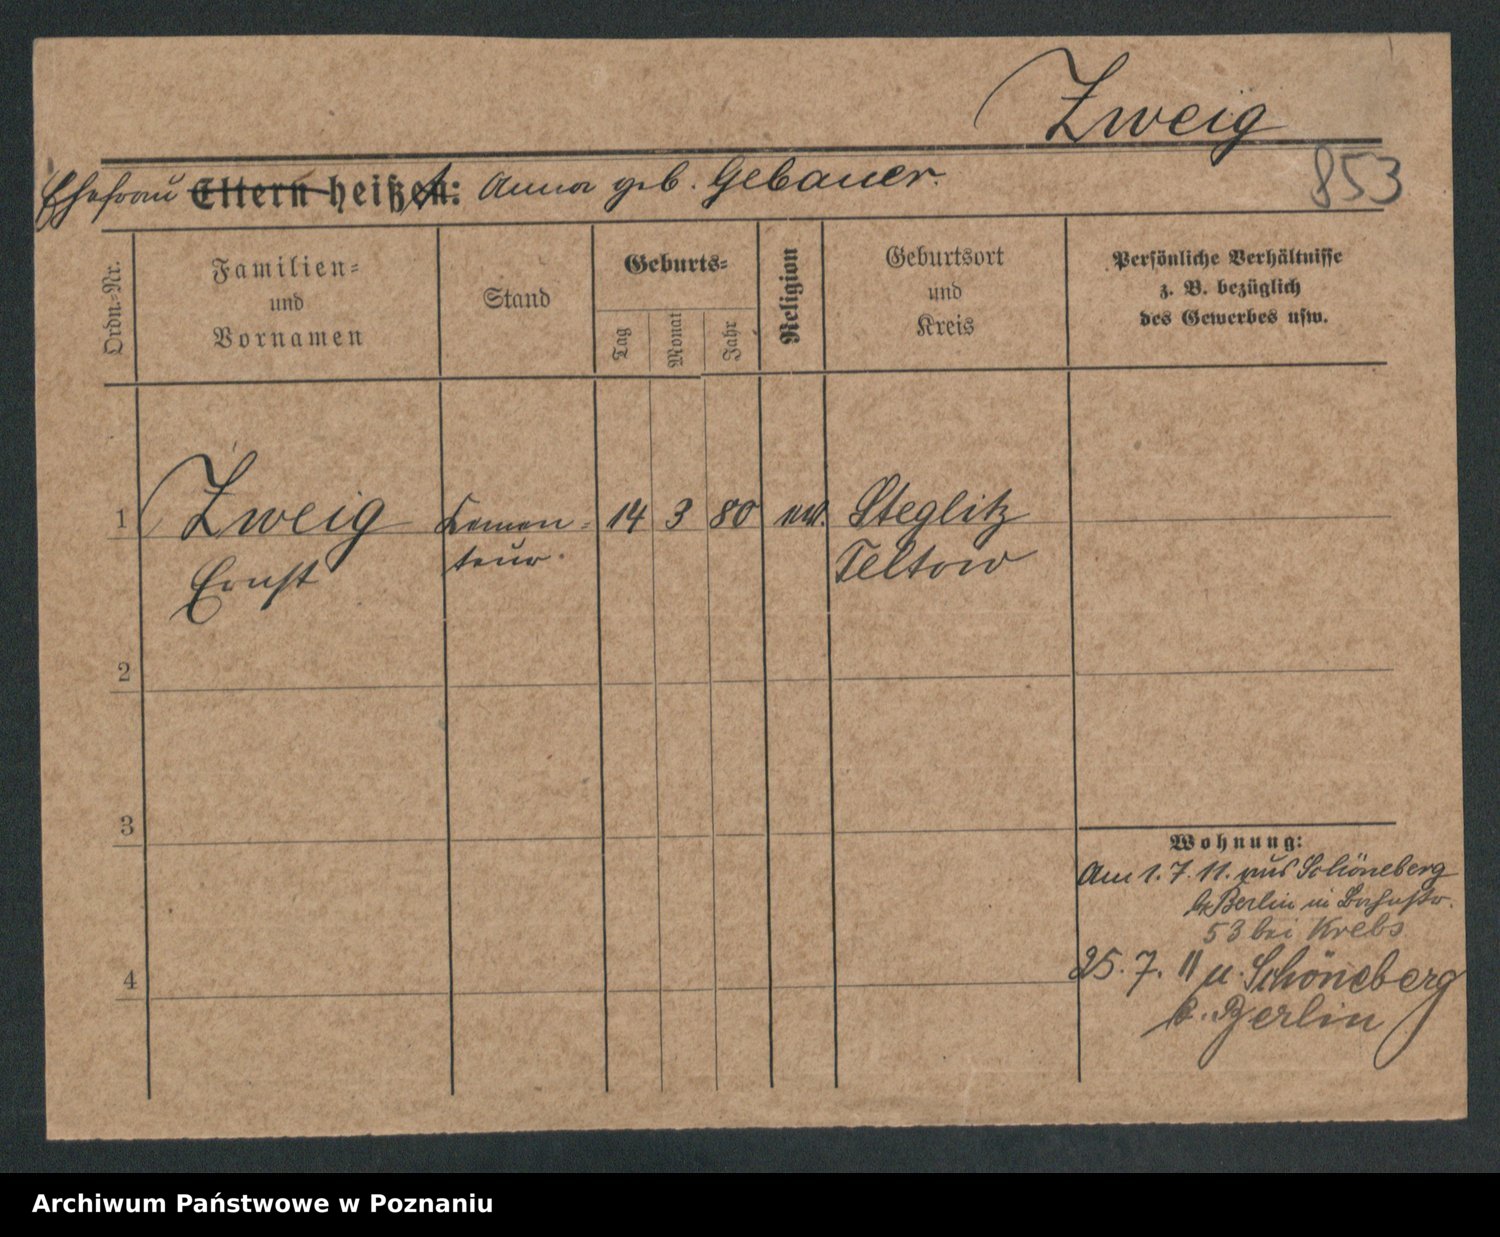 Zweig
853
Ehefrau Eltern heißen: Anna geb. Gebauer.
Ordn.=Nr.
Familien=
und
Vornamen
Stand
Geburts=
Tag
Monat
Jahr
Religion
Geburtsort
und
Kreis
Persönliche Verhältnisse
z. B. bezüglich
des Gewerbes usw.
1 Zweig 14 3 80 ev. Steglitz
Ernst teur. Teltow
2
3
Wohnung:
Am 1. 7. 11. aus Schöneberg
b. Berlin in
53 bei Krebs
4
25. 7. 11 n. Schöneberg
b. Berlin
Archiwum Państwowe w Poznaniu